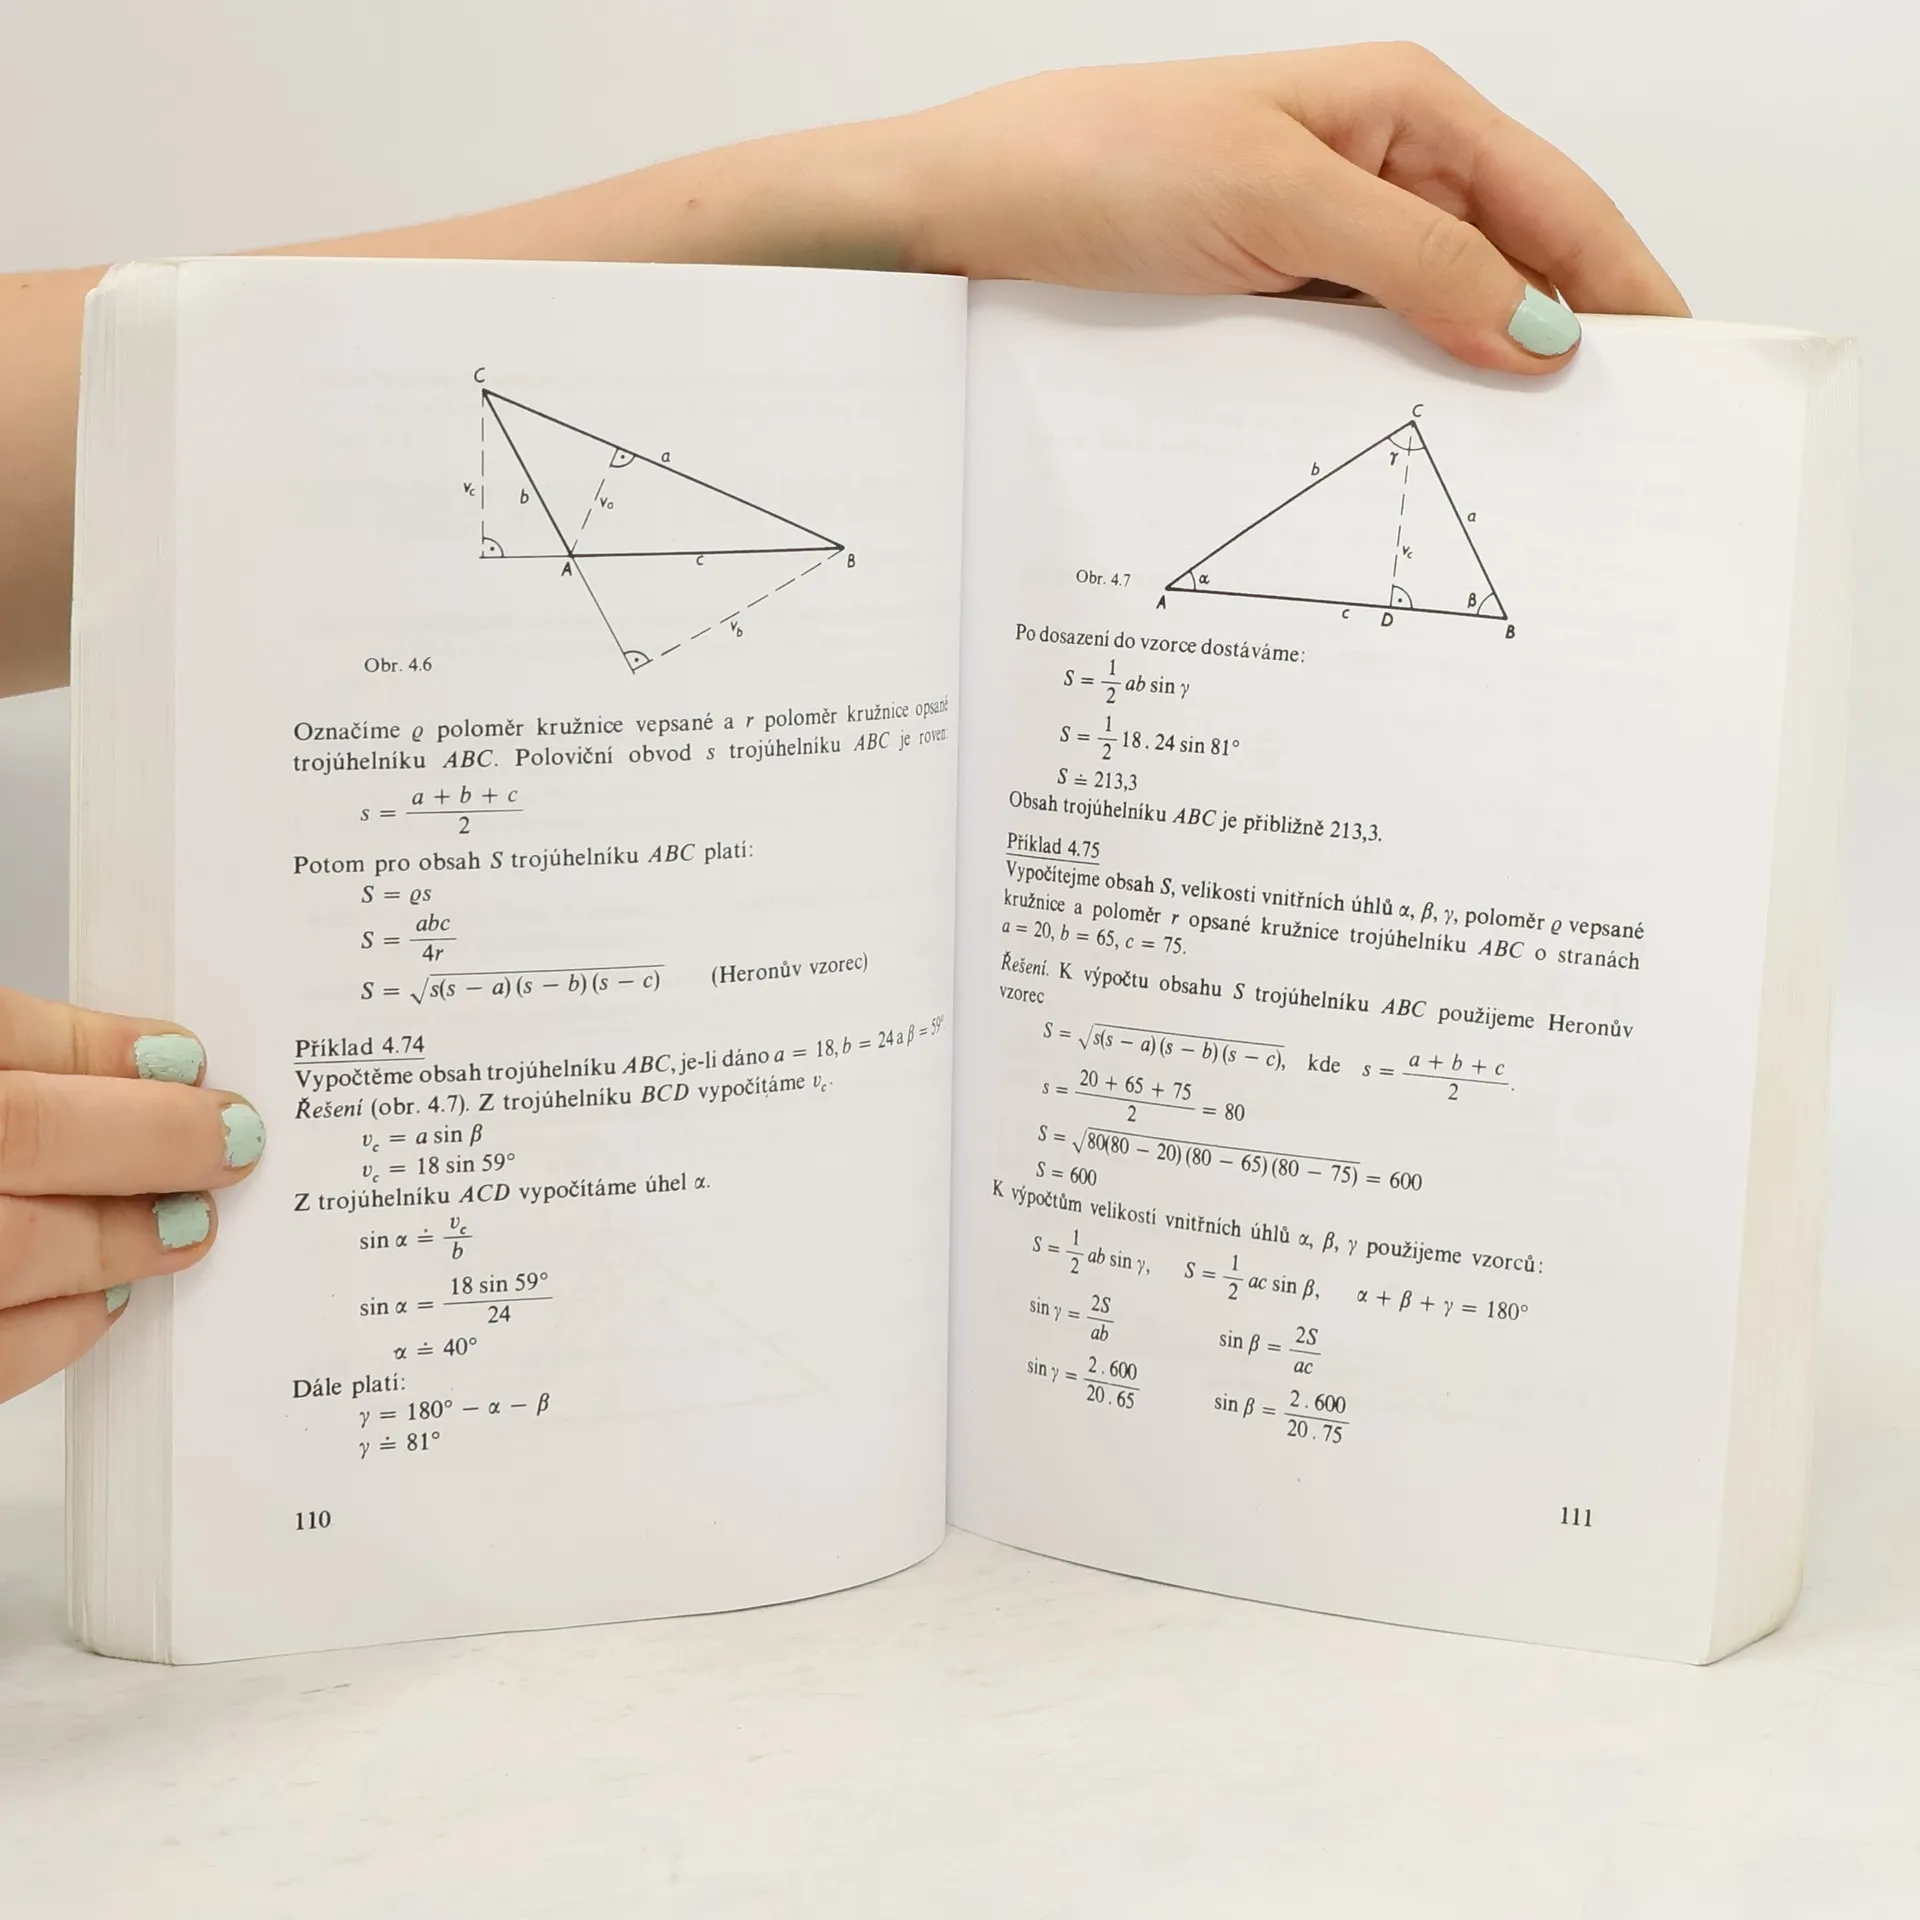 C
a
v_c
b
v_a
A
c
B
v_b
Obr. 4.6
Označíme ϱ poloměr kružnice vepsané a r poloměr kružnice opsané
trojúhelníku ABC. Poloviční obvod s trojúhelníku ABC je roven:
s = (a + b + c)/2
Potom pro obsah S trojúhelníku ABC platí:
S = ϱs
S = abc/4r
S = √s(s − a)(s − b)(s − c) (Heronův vzorec)
Příklad 4.74
Vypočtěme obsah trojúhelníku ABC, je-li dáno a = 18, b = 24 a β = 59°
Řešení (obr. 4.7). Z trojúhelníku BCD vypočítáme v_c.
v_c = a sin β
v_c = 18 sin 59°
Z trojúhelníku ACD vypočítáme úhel α.
sin α ≐ v_c/b
sin α = 18 sin 59°/24
α ≐ 40°
Dále platí:
γ = 180° − α − β
γ ≐ 81°
110
C
γ
b
a
v_c
Obr. 4.7
α
β
A
c
D
B
Po dosazení do vzorce dostáváme:
S = 1/2 ab sin γ
S = 1/2 18 . 24 sin 81°
S ≐ 213,3
Obsah trojúhelníku ABC je přibližně 213,3.
Příklad 4.75
Vypočítejme obsah S, velikosti vnitřních úhlů α, β, γ, poloměr ϱ vepsané
kružnice a poloměr r opsané kružnice trojúhelníku ABC o stranách
a = 20, b = 65, c = 75.
Řešení. K výpočtu obsahu S trojúhelníku ABC použijeme Heronův
vzorec
S = √s(s − a)(s − b)(s − c), kde s = (a + b + c)/2.
s = (20 + 65 + 75)/2 = 80
S = √80(80 − 20)(80 − 65)(80 − 75) = 600
S = 600
K výpočtům velikostí vnitřních úhlů α, β, γ použijeme vzorců:
S = 1/2 ab sin γ, S = 1/2 ac sin β, α + β + γ = 180°
sin γ = 2S/ab sin β = 2S/ac
sin γ = 2 . 600/20 . 65 sin β = 2 . 600/20 . 75
111